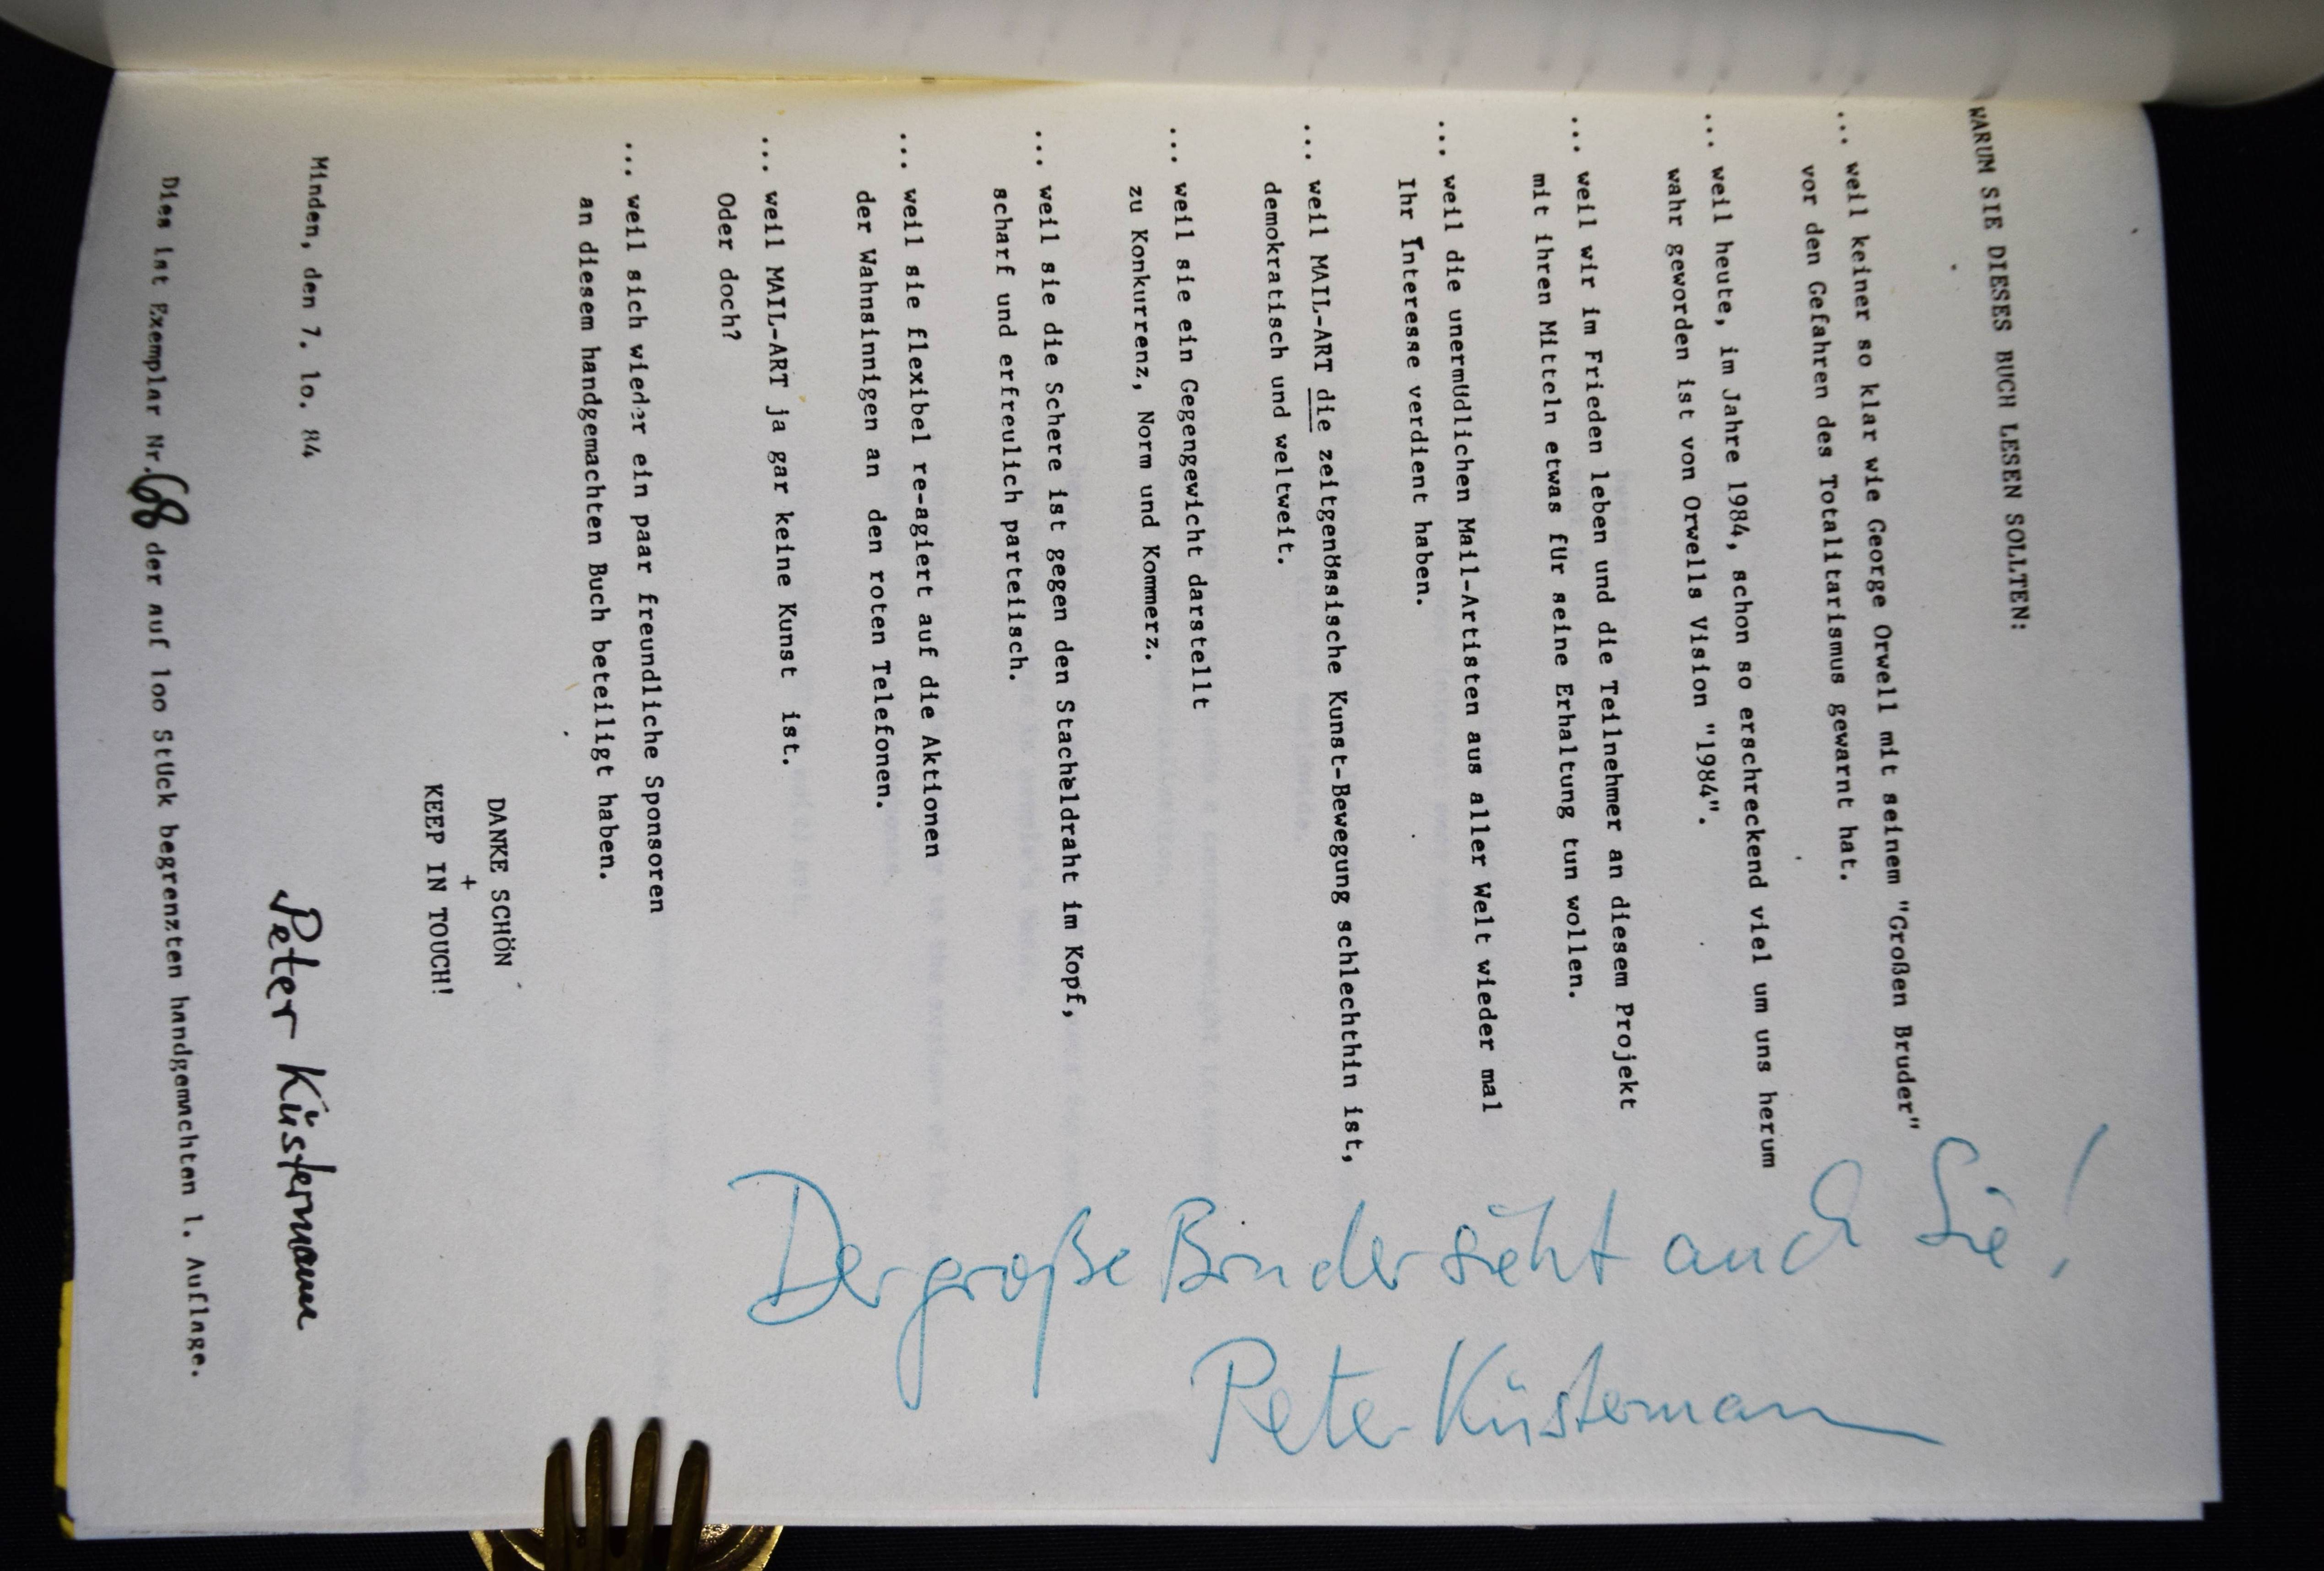 WARUM SIE DIESES BUCH LESEN SOLLTEN:
... weil keiner so klar wie George Orwell mit seinem "Großen Bruder"
vor den Gefahren des Totalitarismus gewarnt hat.
... weil heute, im Jahre 1984, schon so erschreckend viel um uns herum
wahr geworden ist von Orwells Vision "1984".
... weil wir im Frieden leben und die Teilnehmer an diesem Projekt
mit ihren Mitteln etwas für seine Erhaltung tun wollen.
... weil die unermüdlichen Mail-Artisten aus aller Welt wieder mal
Ihr Interesse verdient haben.
... weil MAIL-ART die zeitgenössische Kunst-Bewegung schlechthin ist,
demokratisch und weltweit.
... weil sie ein Gegengewicht darstellt
zu Konkurrenz, Norm und Kommerz.
... weil sie die Schere ist gegen den Stacheldraht im Kopf,
scharf und erfreulich parteiisch.
... weil sie flexibel re-agiert auf die Aktionen
der Wahnsinnigen an den roten Telefonen.
... weil MAIL-ART ja gar keine Kunst ist.
Oder doch?
... weil sich wieder ein paar freundliche Sponsoren
an diesem handgemachten Buch beteiligt haben.
DANKE SCHÖN
+
KEEP IN TOUCH!
Minden, den 7. 10. 84
Peter Küstermann
Dies ist Exemplar Nr. 68 der auf 100 Stück begrenzten handgemachten 1. Auflage.
Der große Bruder sieht auch Sie!
Peter Küstermann